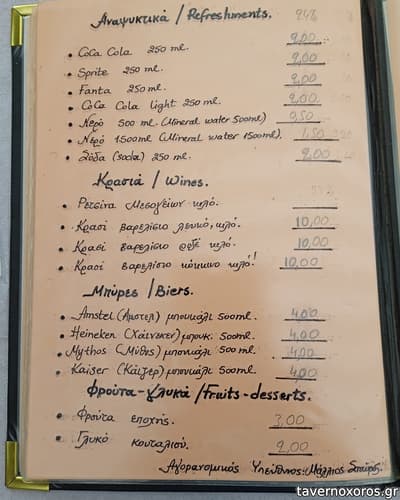 Αναψυκτικά / Refreshments. 24%
• Coca Cola 250 ml. 2,00
• Sprite 250 ml. 2,00
• Fanta 250 ml. 2,00
• Coca Cola light 250 ml. 2,00
• Νερό 500 ml (Mineral water 500ml) 0,50
• Νερό 1500ml (Mineral water 1500ml). 1,50
• Σόδα (soda) 250 ml. 2,00
Κρασιά / Wines.
• Ρετσίνα Μεσογείων κιλό.
• Κρασί βαρελίσιο λευκό, κιλό. 10,00
• Κρασί βαρελίσιο ροζέ κιλό. 10,00
• Κρασί βαρελίσιο κόκκινο κιλό! 10,00
Μπύρες / Biers.
• Amstel (Άμστελ) μπουκάλι 500ml. 4,00
• Heineken (Χάινεκεν) μπουκ. 500ml. 4,00
• Mythos (Μύθος) μπουκάλι 500 ml. 4,00
• Kaiser (Κάιζερ) μπουκάλι 500ml. 4,00
Φρούτα-Γλυκά / Fruits-desserts.
• Φρούτα εποχής. 3,00
• Γλυκό κουταλιού. 2,00
Αγορανομικός Υπεύθυνος: Μάλλιος Σπύρος.
tavernoxoros.gr